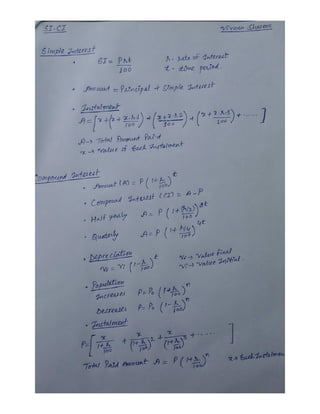 SI-CI
Simple Interest
• SI = PRt/100
r - Rate of Interest
t - time period.
• Amount = Principal + Simple Interest
• Instalment
A = [x + (x + x.r.1/100) + (x + x.r.2/100) + (x + x.r.3/100) + ..... ]
A → Total Amount Paid
x → Value of Each Instalment
Compound Interest
• Amount (A) = P (1 + r/100)^t
• Compound Interest (CI) = A - P
• Half yearly A = P (1 + r/2/100)^2t
• Quaterly A = P (1 + r/4/100)^4t
• Depreciation
Vf = Vi (1 - r/100)^t
Vf → Value final
Vi → Value Initial.
• Population
Increases P = Po (1 + r/100)^n
Decreases P = Po (1 - r/100)^n
• Instalment
P = [ x/(1 + r/100) + x/(1 + r/100)^2 + x/(1 + r/100)^3 + ..... ]
Total Paid Amount A = P (1 + r/100)^n
x → Each Instalment